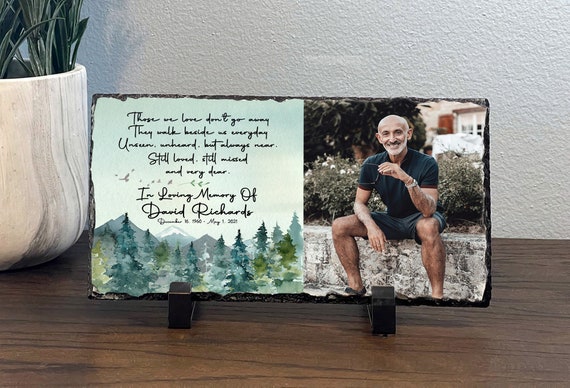 Those we love don't go away
They walk beside us everyday
Unseen, unheard, but always near.
Still loved, still missed
and very dear.
In Loving Memory Of
David Richards
December 16, 1960 - May 1, 2021